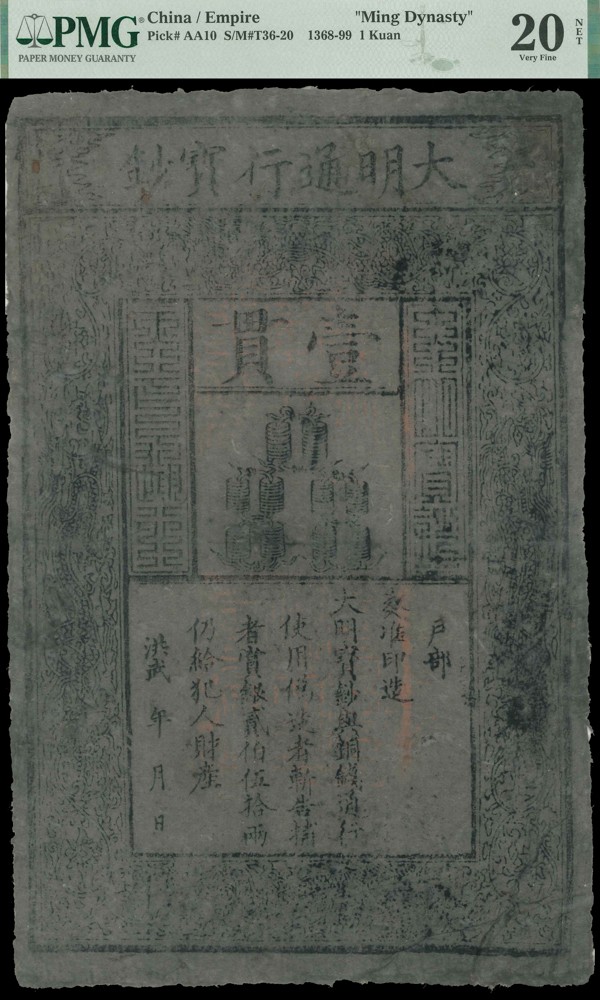 PMG
PAPER MONEY GUARANTY
China / Empire "Ming Dynasty"
Pick# AA10 S/M#T36-20 1368-99 1 Kuan
20 NET
Very Fine
大明通行寶鈔
壹貫
大明寶鈔
天下通行
戶部
奏准印造
大明寶鈔與銅錢通行
使用偽造者斬告捕
者賞銀貳伯伍拾兩
仍給犯人財產
洪武 年 月 日